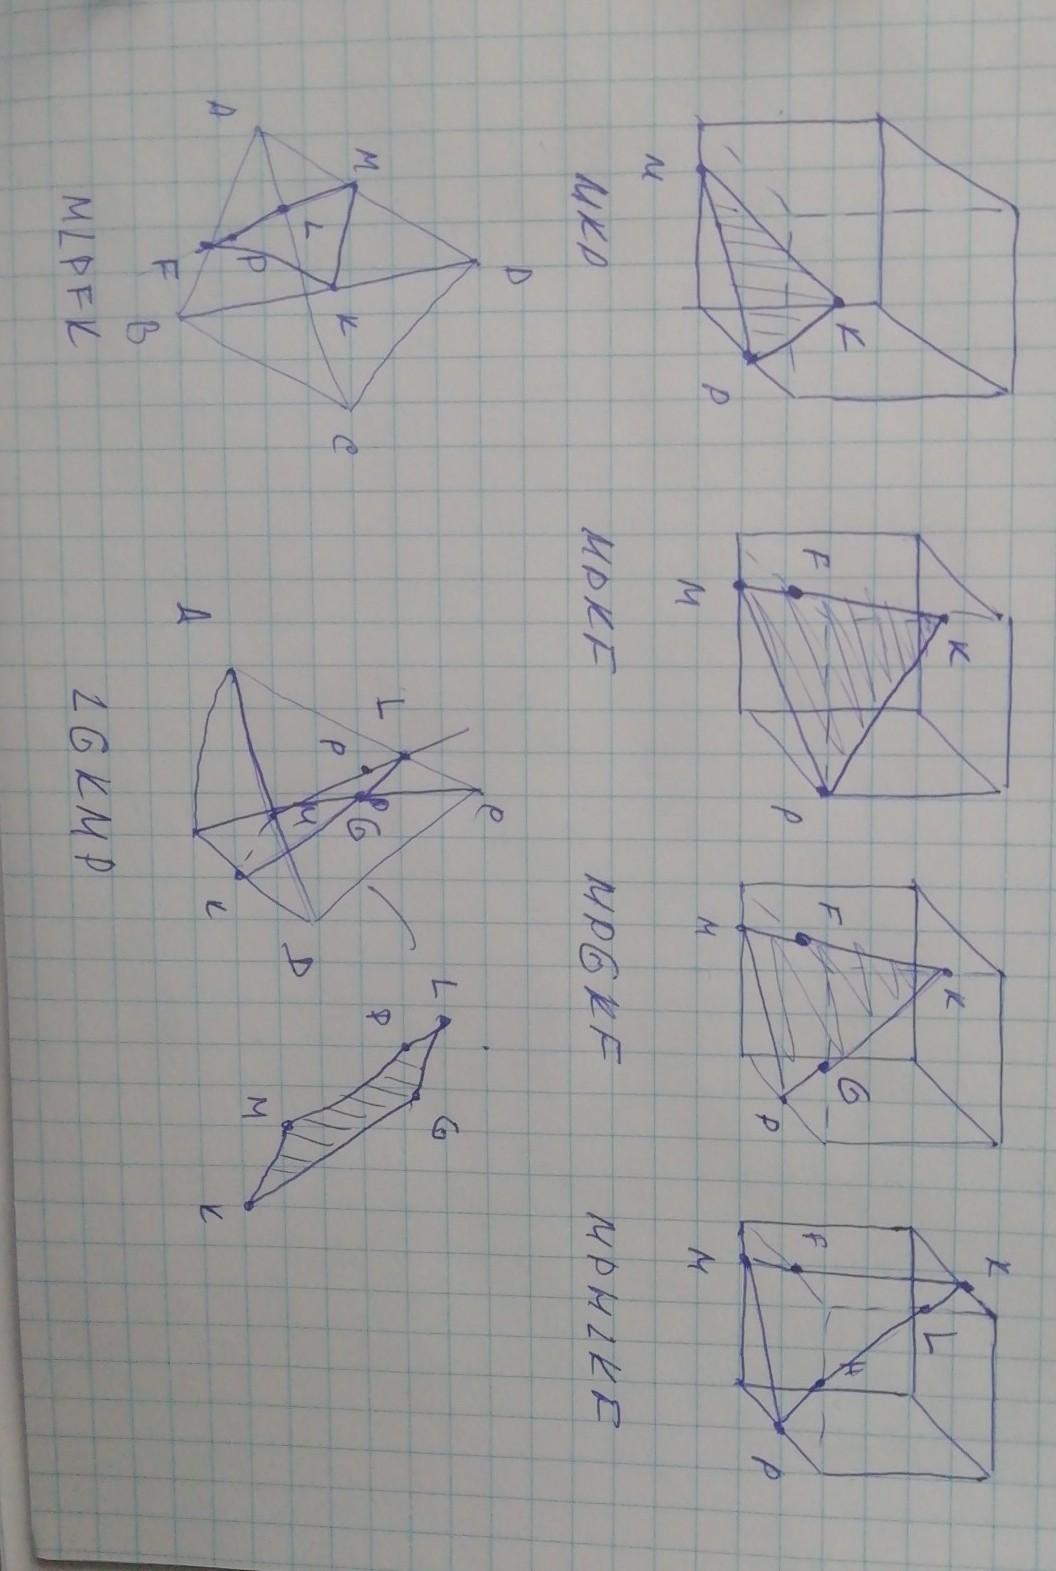 M
K
P
MKP
F
M
K
P
MPKF
F
M
K
G
P
MPGKF
F
K
M
L
H
P
MPHLKF
A
M
D
L
P
F
K
B
C
MLPFK
A
L
P
C
M
G
K
D
L
P
M
G
K
LGKMP